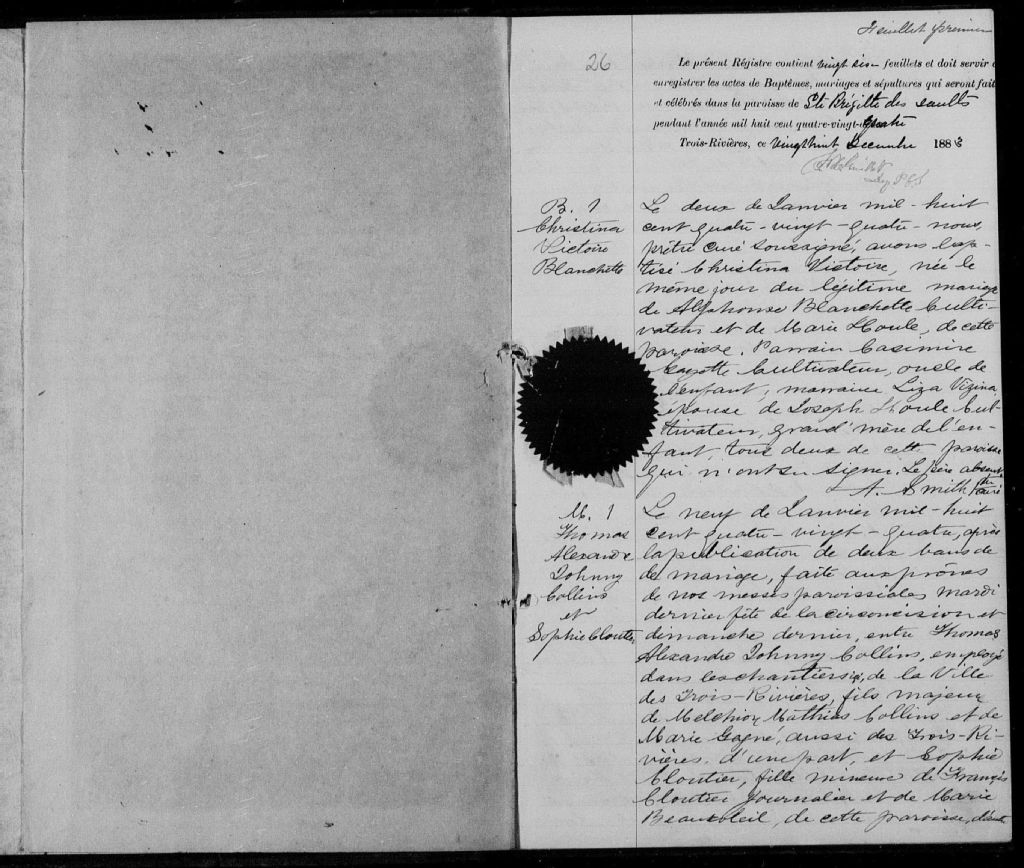 Feuillet premier
26
Le présent Régistre contient vingt six feuillets et doit servir
enregistrer les actes de Baptêmes, mariages et sépultures qui seront fait
et célébrés dans la paroisse de Ste Brigitte des Saults
pendant l'année mil huit cent quatre-vingt-quatre
Trois-Rivières, ce vingt huit Décembre 1883
B. 1
Christina
Victoire
Blanchette
Le deux de Janvier mil-huit
cent quatre-vingt-quatre-nous,
prêtre curé soussigné, avons bap-
tisé Christina Victoire, née le
même jour du légitime mariage
de Alphonse Blanchette Culti-
vateur et de Marie Houle, de cette
paroisse. Parrain Casimire
Cultivateur, oncle de
l'enfant, marraine Liza Vizina,
épouse de Joseph Houle Cul-
tivateur, grand'mère de l'en-
fant, tous deux de cette paroisse
qui n'ont su signer. Le père absent
A. Smith Ptre curé
M. 1
Thomas
Alexandre
Johnny
Collins
et
Sophie Cloutier
Le neuf de Janvier mil-huit
cent quatre-vingt-quatre, après
la publication de deux bans de
de mariage, faite aux prônes
de nos messes paroissiales mardi
dernier fête de la circoncision et
dimanche dernier, entre Thomas
Alexandre Johnny Collins, employé
dans les chantiers, de la Ville
des Trois-Rivières, fils majeur
de Melchior Matthias Collins et de
Marie Gagné, aussi des Trois-Ri-
vières, d'une part, et Sophie
Cloutier, fille mineure de François
Cloutier Journalier et de Marie
Beausoleil, de cette paroisse, d'autre